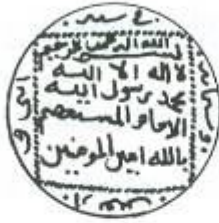 في سنة
بسم الله الرحمن الرحيم
لا اله الا الله
محمد رسول الله
الامام المستعصم
بالله امير المومنين
اربعين
وستمائة